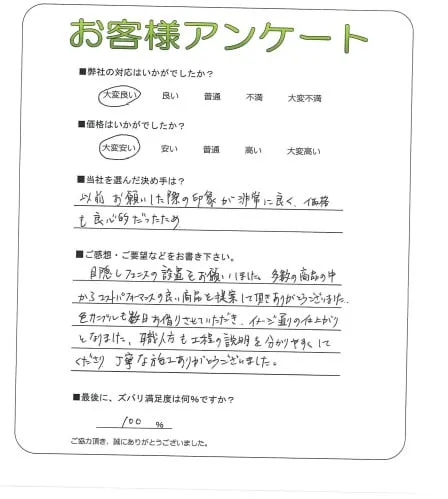 お客様アンケート
■弊社の対応はいかがでしたか？
大変良い 良い 普通 不満 大変不満
■価格はいかがでしたか？
大変安い 安い 普通 高い 大変高い
■当社を選んだ決め手は？
以前お願いした際の印象が非常に良く、価格
も良心的だったため
■ご感想・ご要望などをお書き下さい。
目隠しフェンスの設置をお願いしました。多数の商品の中
からコストパフォーマンスの良い商品を提案して頂きありがとうございました。
色サンプルも数日お借りさせていただき、イメージ通りの仕上がり
となりました。職人方も工程の説明を分かりやすくして
くださり丁寧な施工ありがとうございました。
■最後に、ズバリ満足度は何％ですか？
100 ％
ご協力頂き、誠にありがとうございました。